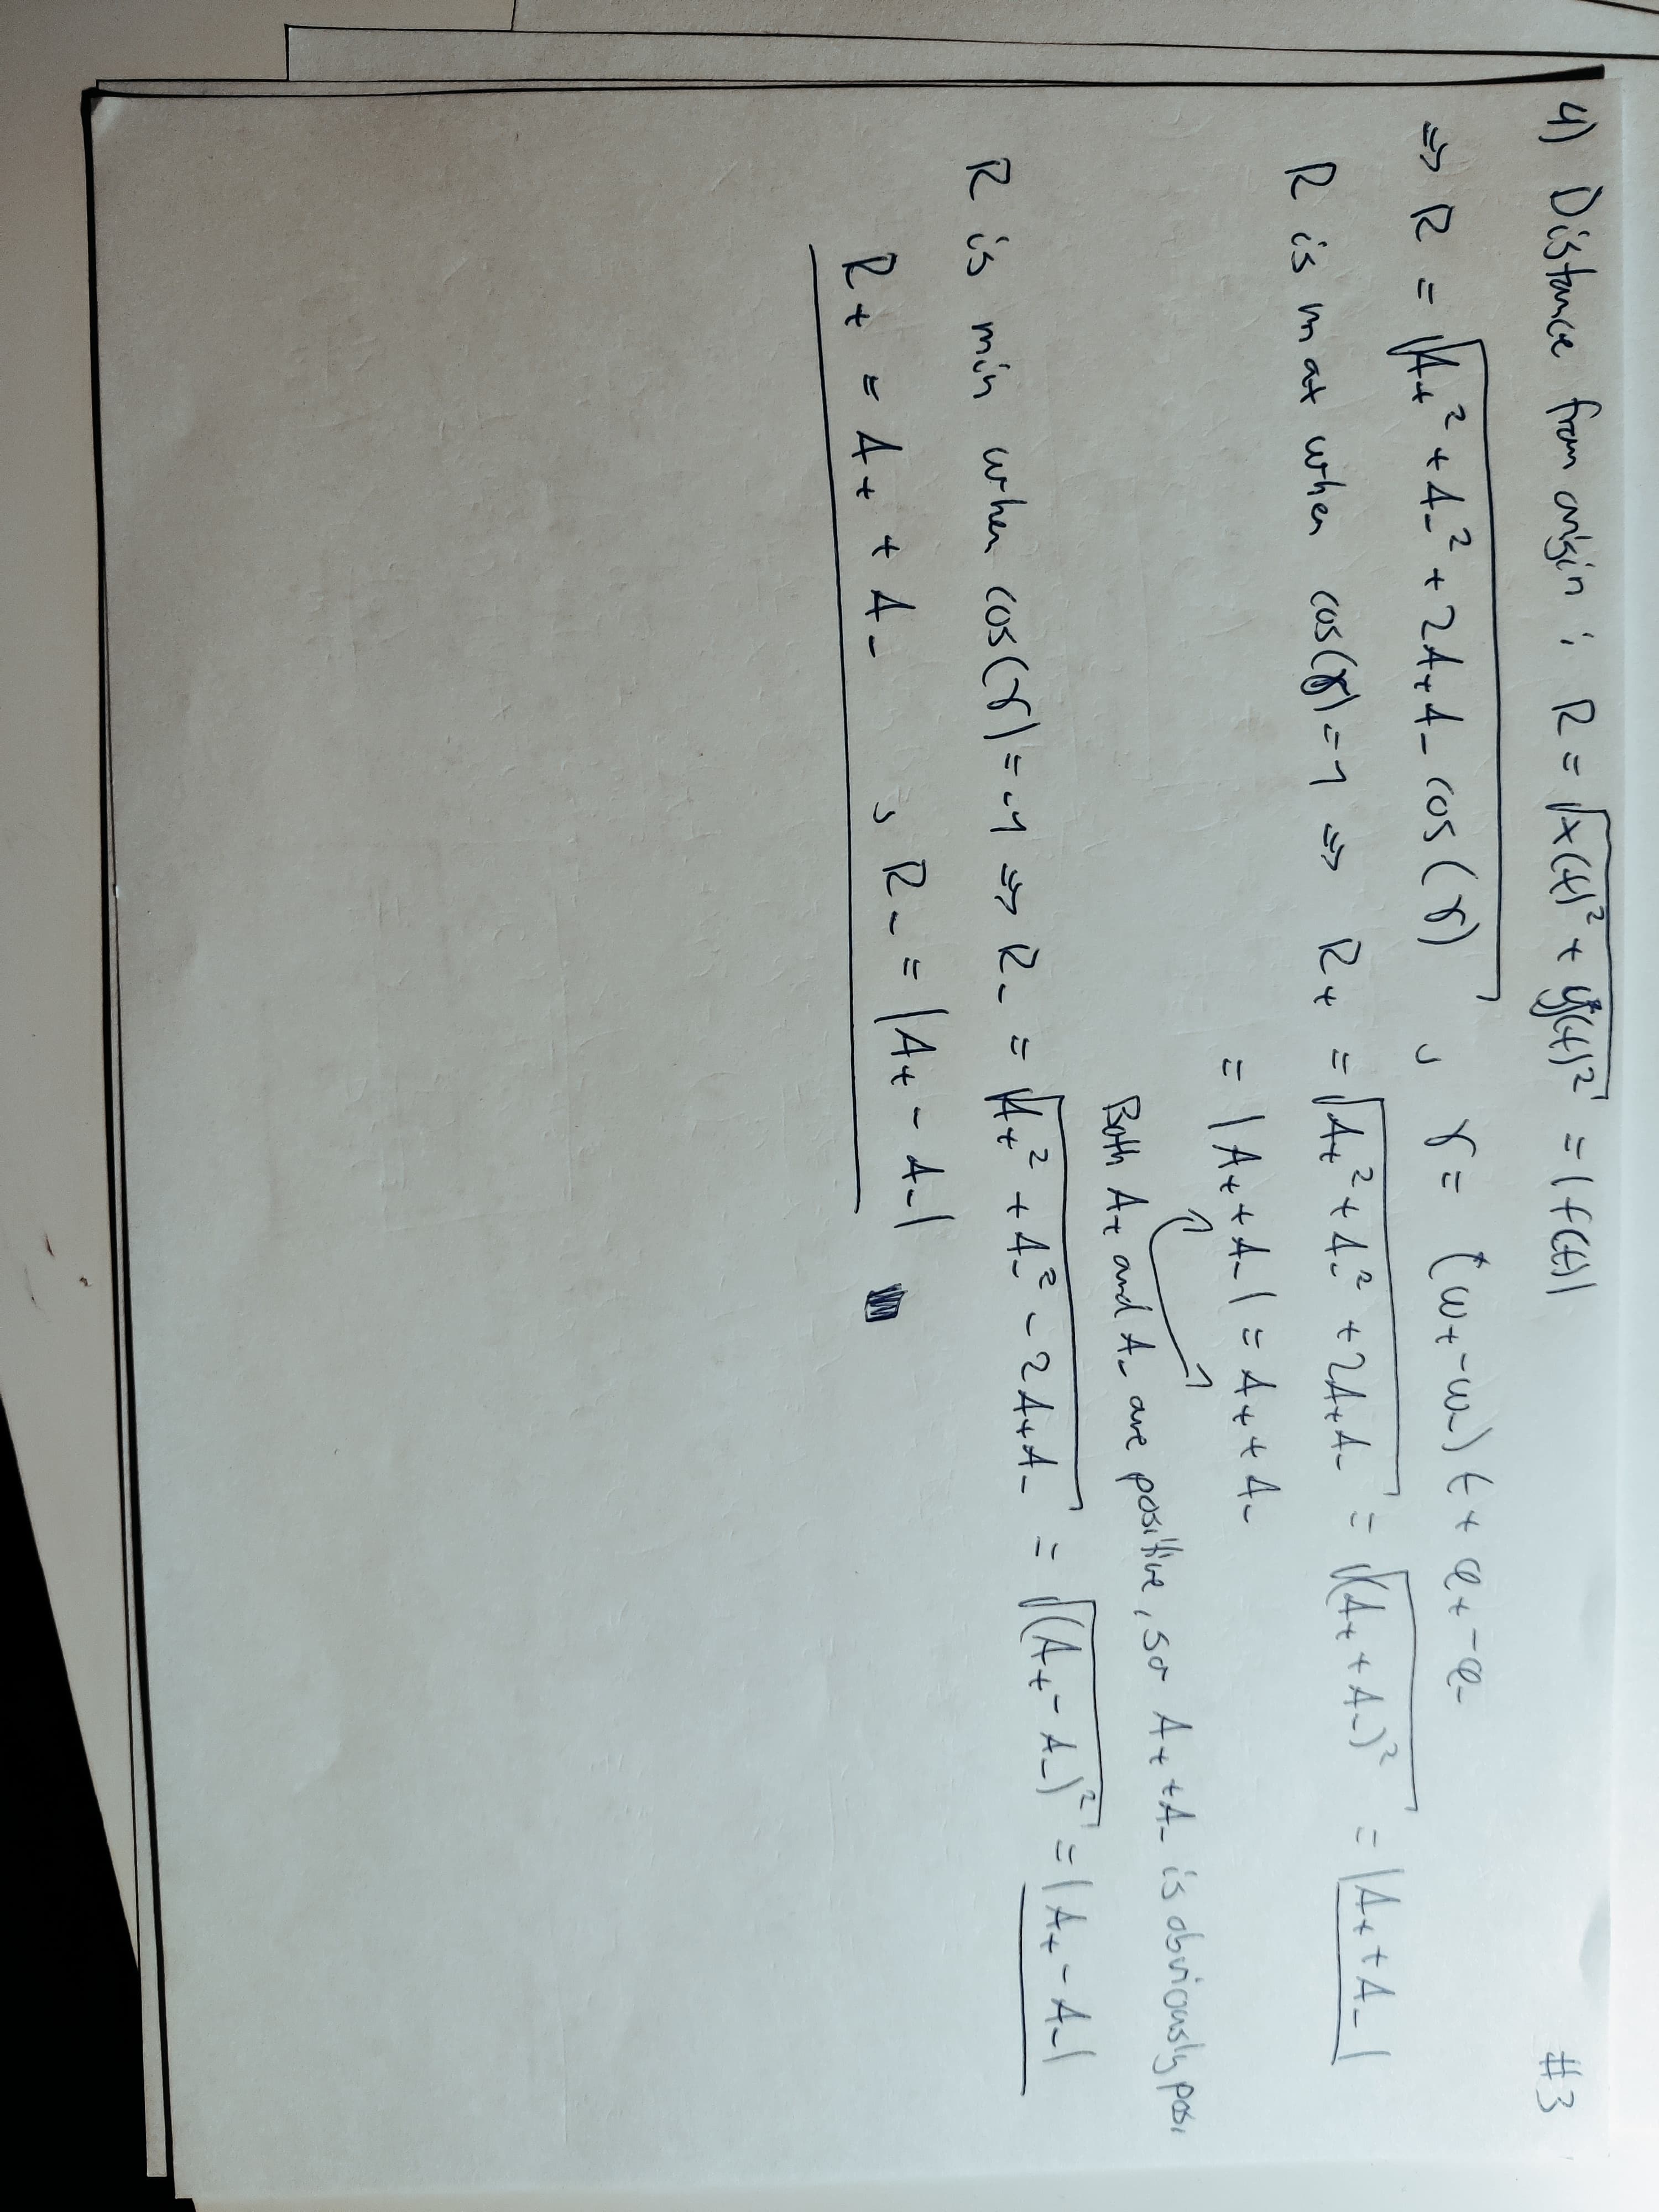 4) Distance from origin : R = √(x(t)² + y(t)²) = |f(t)| #3
⇒ R = √(A₊² + A₋² + 2A₊A₋ cos(γ)) , γ = (ω₊-ω₋)t + φ₊ - φ₋
R is max when cos(γ) = 1 ⇒ R₊ = √(A₊² + A₋² + 2A₊A₋) = √((A₊ + A₋)²) = |A₊ + A₋|
= |A₊ + A₋| = A₊ + A₋
Both A₊ and A₋ are positive, so A₊ + A₋ is obviously pos.
R is min when cos(γ) = -1 ⇒ R₋ = √(A₊² + A₋² - 2A₊A₋) = √((A₊ - A₋)²) = |A₊ - A₋|
R₊ = A₊ + A₋ , R₋ = |A₊ - A₋|